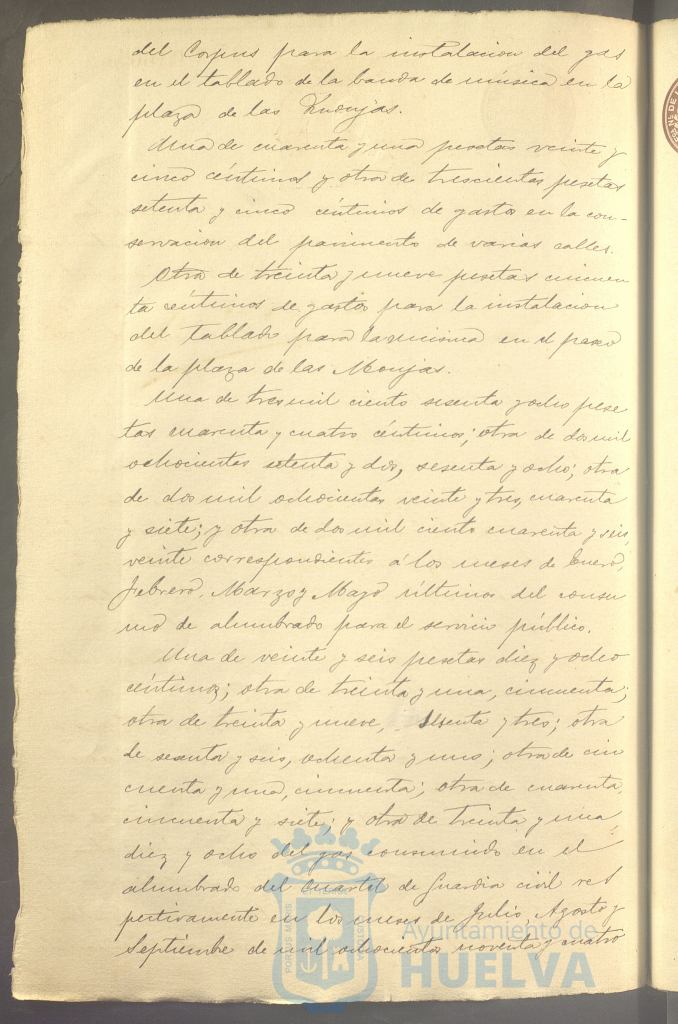 del Corpus para la instalacion del gas
en el tablado de la banda de música en la
plaza de las Monjas.
Una de cuarenta y una pesetas veinte y
cinco céntimos y otra de trescientas pesetas
setenta y cinco céntimos de gastos en la con-
servacion del pavimento de varias calles.
Otra de treinta y nueve pesetas cincuen
ta céntimos de gastos para la instalacion
del tablado para la música en el paseo
de la plaza de las Monjas.
Una de tres mil ciento sesenta y ocho pese
tas cuarenta y cuatro céntimos; otra de dos mil
ochocientas setenta y dos, sesenta y ocho; otra
de dos mil ochocientas veinte y tres, cuarenta
y siete; y otra de dos mil ciento cuarenta y seis,
veinte correspondientes á los meses de Enero,
Febrero, Marzo y Mayo últimos del consu
mo de alumbrado para el servicio público.
Una de veinte y seis pesetas diez y ocho
céntimos; otra de treinta y una, cincuenta;
otra de treinta y nueve, sesenta y tres; otra
de sesenta y seis, ochenta y uno; otra de cin
cuenta y una, cincuenta; otra de cuarenta,
cincuenta y siete; y otra de treinta y una
diez y ocho del gas consumido en el
alumbrado del cuartel de Guardia civil res
pectivamente en los meses de Julio, Agosto y
Septiembre de mil ochocientos noventa y cuatro
Ayuntamiento de
HUELVA
PORTUS MARIS